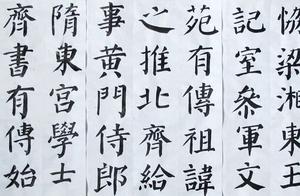 恊梁湘東王
記室參軍文
苑有傳祖諱
之推北齊給
事黄門侍郎
隋東宮學士
齊書有傳始